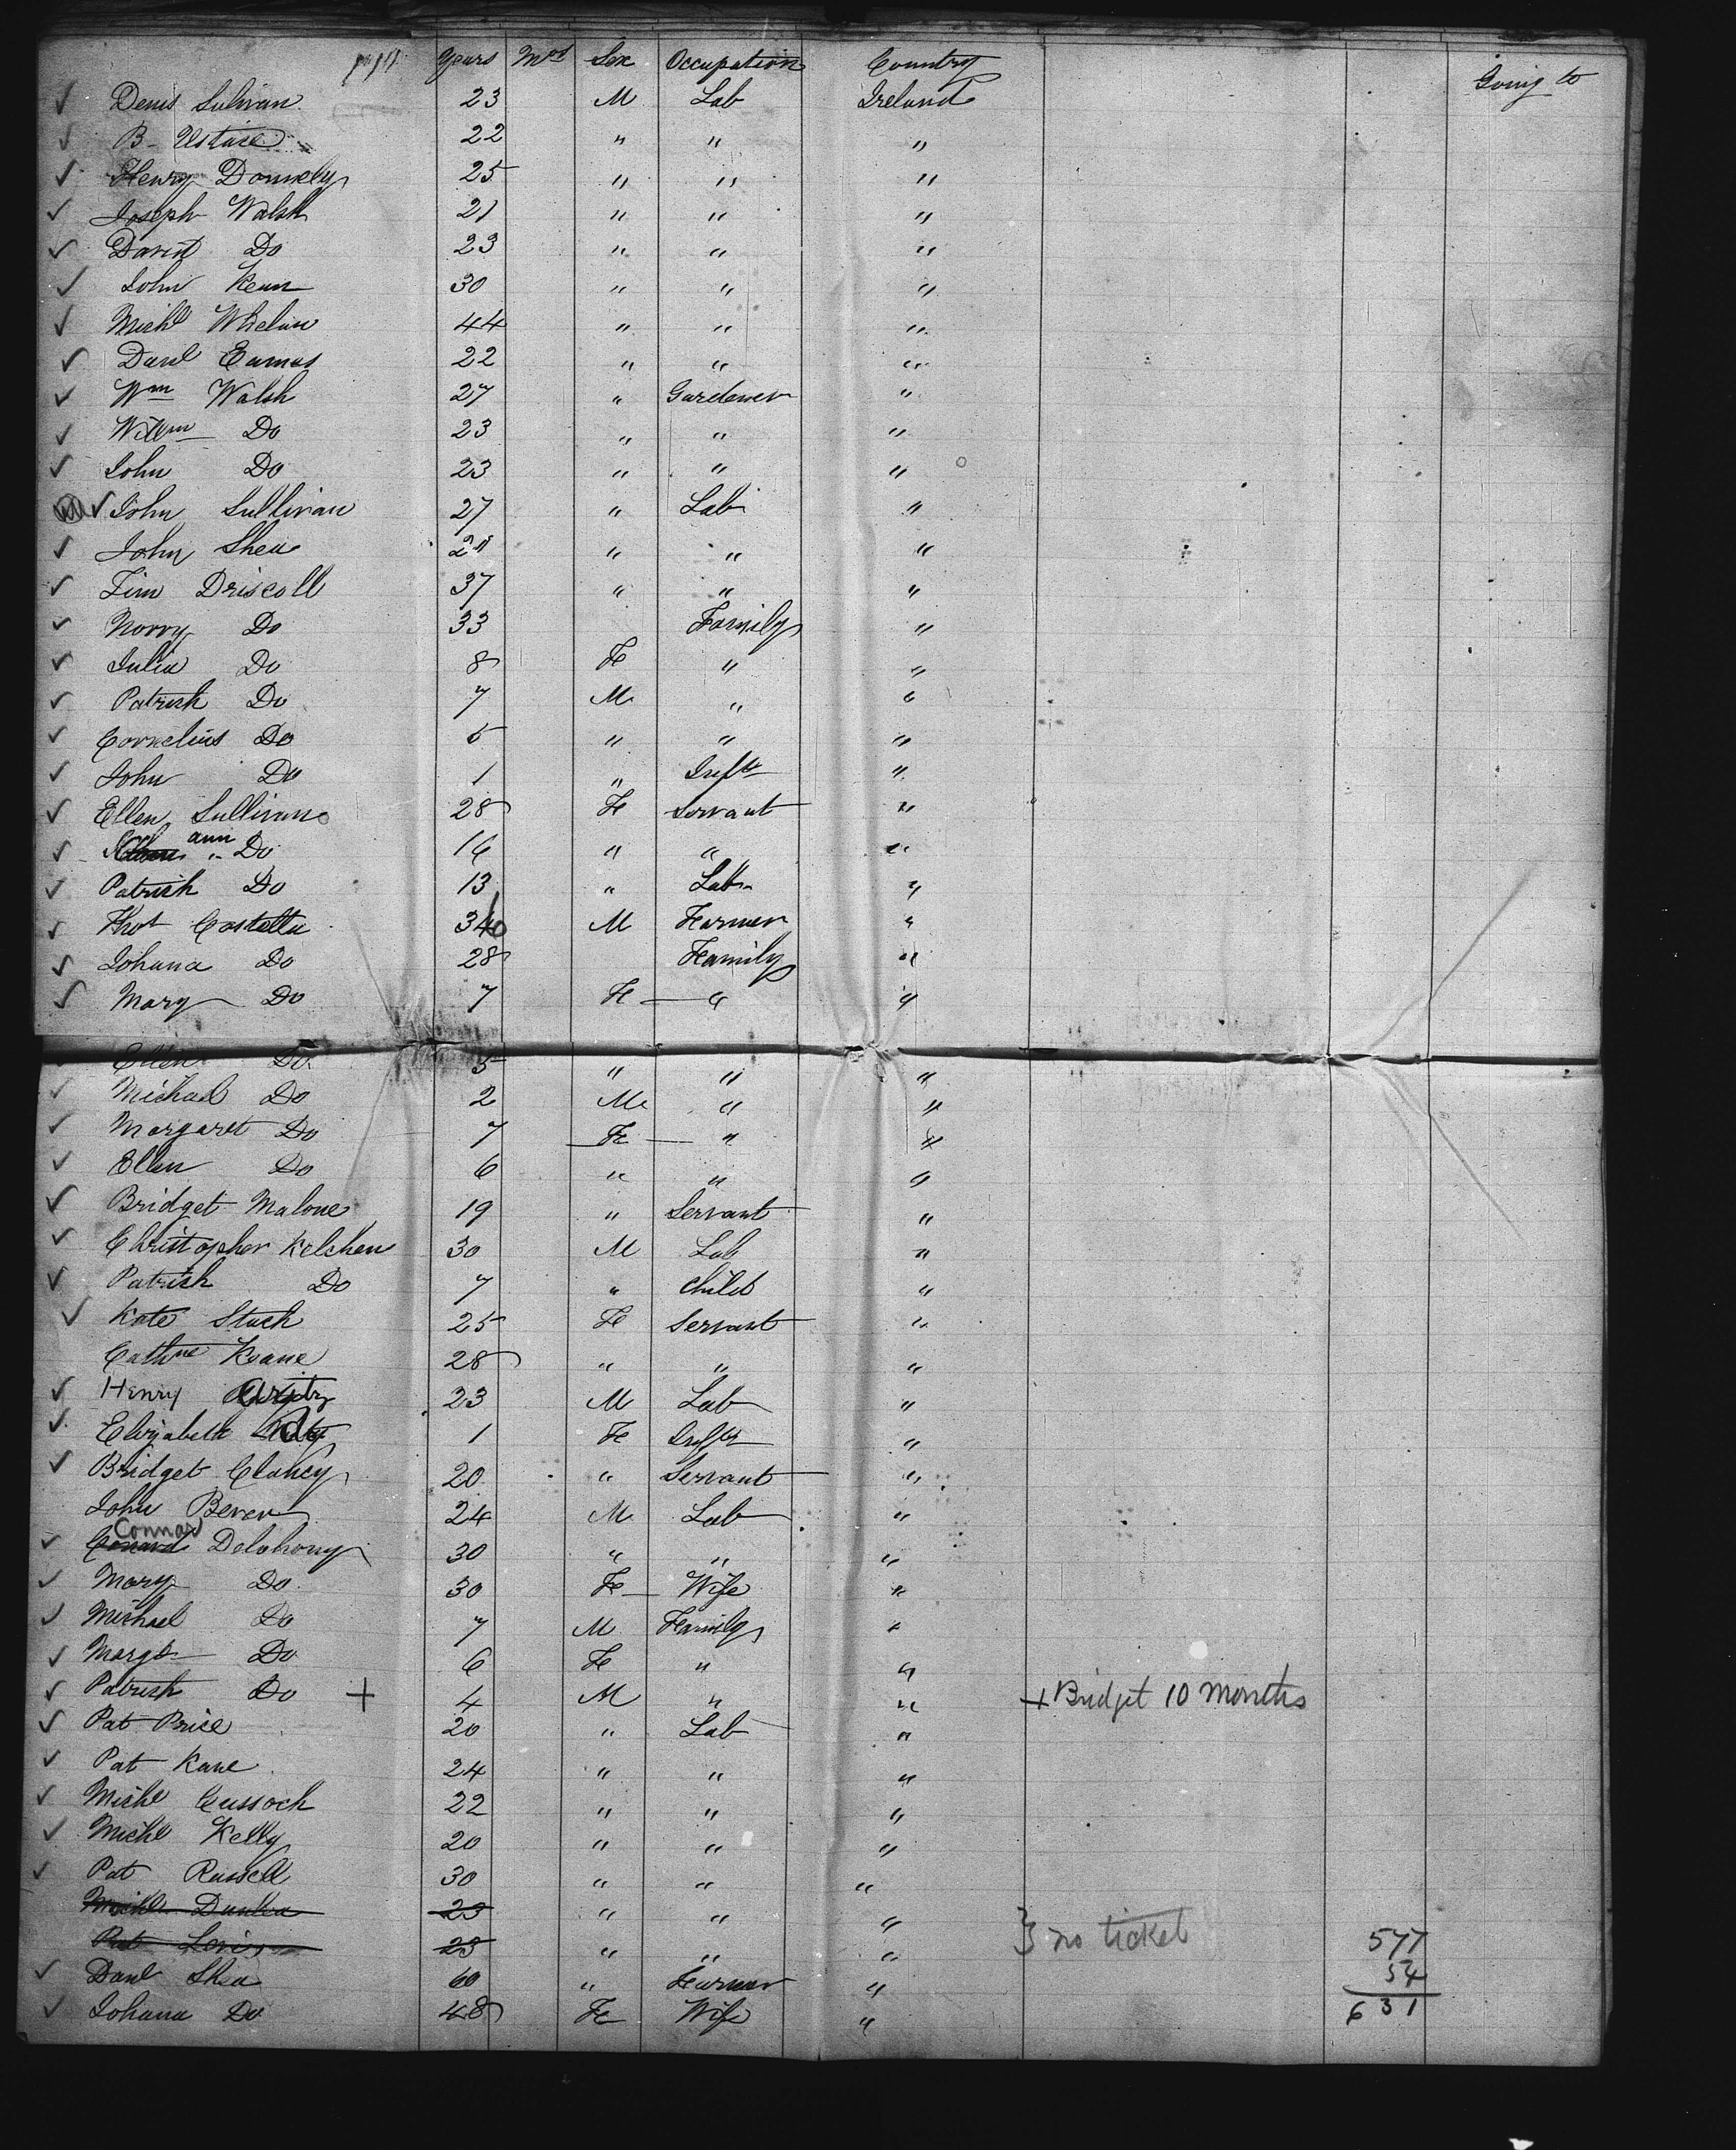 Years Mos Sex Occupation Country Going to
Denis Sulivan 23 M Lab Ireland
B- Ustace 22 " " "
Henry Donnely 25 " " "
Joseph Walsh 21 " " "
David Do 23 " " "
John Kean 30 " " "
Michl Whelan 44 " " "
Danl Eames 22 " " "
Wm Walsh 27 " Gardener "
Willm Do 23 " " "
John Do 23 " " "
John Sullivan 27 " Lab "
John Shea " " "
Tim Driscoll 37 " " "
Norry Do 33 Family "
Julia Do 8 Fe " "
Patrick Do 7 M " "
Cornelius Do 5 " " "
John Do 1 " Inft "
Ellen Sullivan 28 Fe Servant "
ann Do 16 " " "
Patrick Do 13 " Lab "
Thos Costello M Farmer "
Johana Do 28 Family "
Mary Do 7 Fe " "
Ellen Do 5 " " "
Michael Do 2 M " "
Margaret Do 7 Fe " "
Ellen Do 6 " " "
Bridget Malone 19 " Servant "
Christopher Kelchen 30 M Lab "
Patrick Do 7 " Child "
Kate Stack 25 Fe Servant "
Cathne Keane 28 " " "
Henry 23 M Lab "
Elizabeth 1 Fe Inft "
Bridget Clancy 20 " Servant "
John Beren 24 M Lab "
Connad
Conard Delahony 30 " " "
Mary Do 30 Fe Wife "
Michael Do 7 M Family "
Margt Do 6 Fe " "
Patrick Do + 4 M " " + Bridget 10 Months
Pat Price 20 " Lab "
Pat Kane 24 " " "
Michl Cussack 22 " " "
Michl Kelly 20 " " "
Pat Russell 30 " " "
Michl Dunlea 23 " " "
Pat 23 " " " } no ticket 577
Danl Shea 60 " Farmer " 54
Johana Do 48 Fe Wife " 631